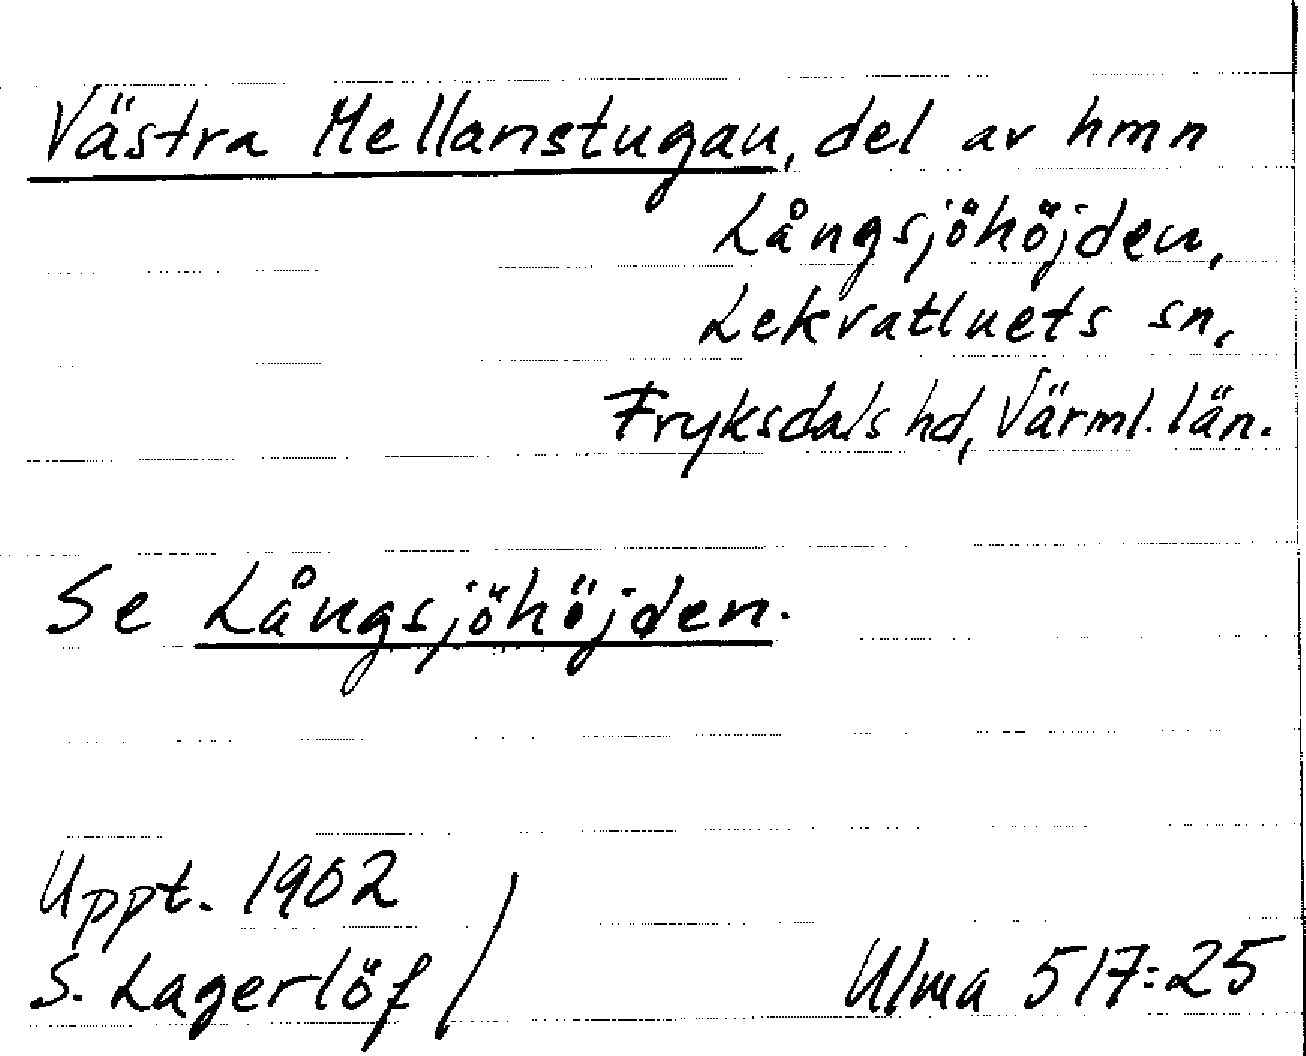 Västra Mellanstugan, del av hmn
Långsjöhöjden,
Lekvattnets sn,
Fryksdals hd, Värml. län.
Se Långsjöhöjden.
Uppt. 1902
S. Lagerlöf /
Ulma 517:25